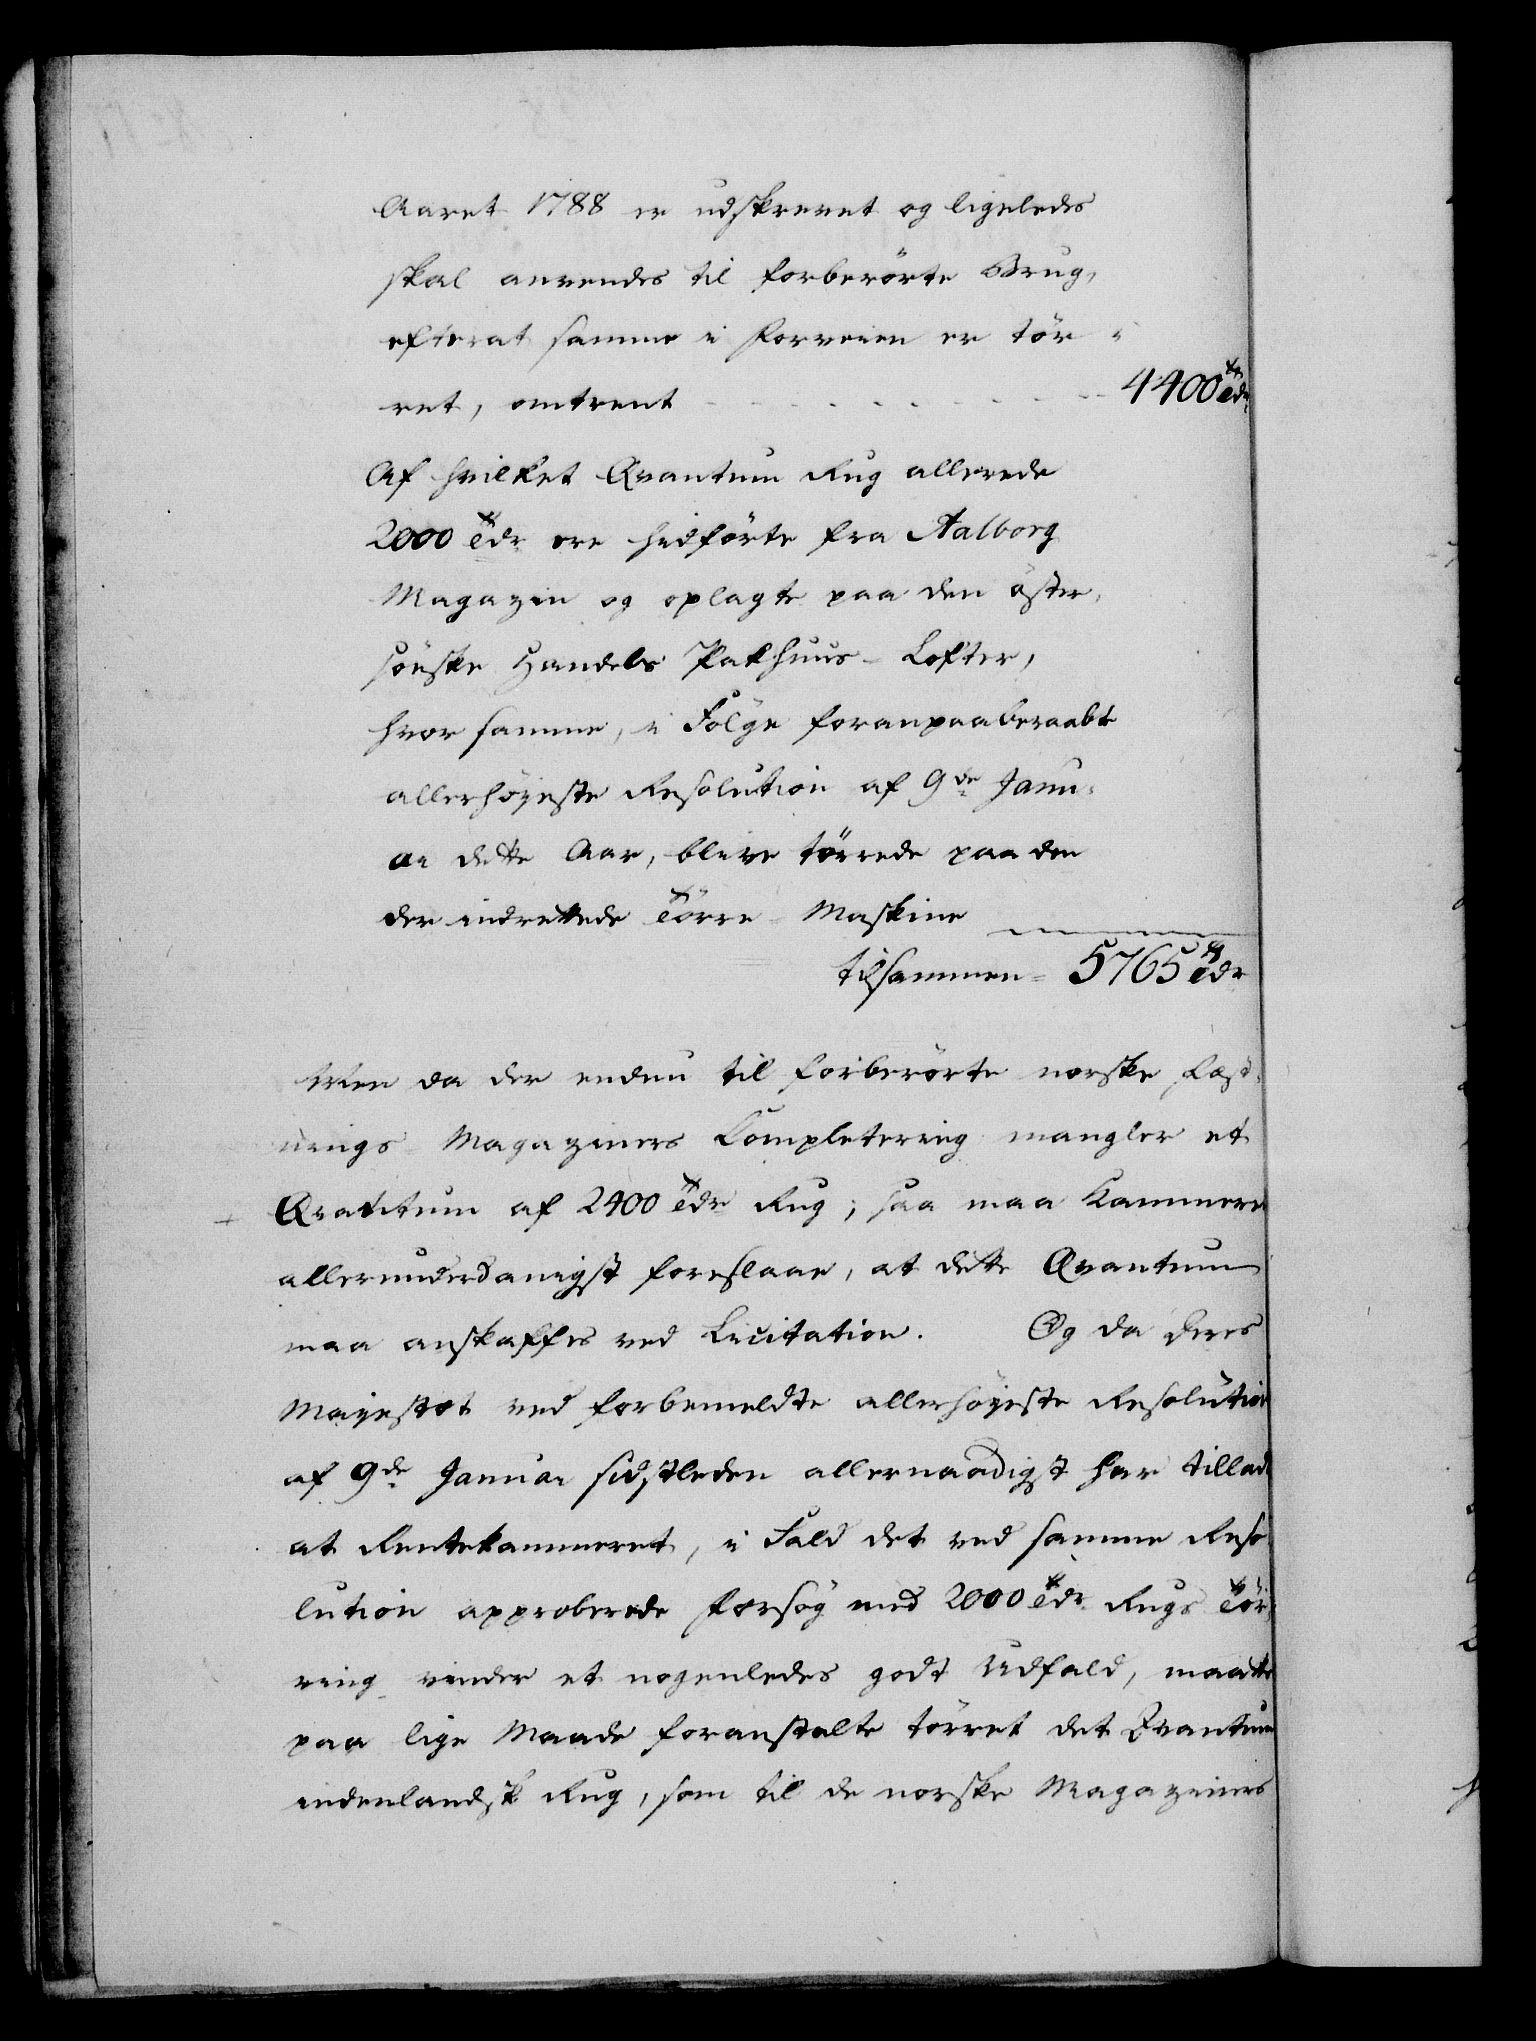 Aaret 1788 er udskrevet og ligeledes
skal anvendes til forberörte Brug,
efterat samme i Forveien er tör-
ret, omtrent - - - - - - - - - 4400 Tdr
Af hvilket Qvantum Rug allerede
2000 Tdr ere hidförte fra Aalborg
Magazin og oplagte paa den öster-
söeske Handels Pakhuus-Lofter,
hvor samme, i Fölge foranpaaberaabte
allerhöyeste Resolution af 9de Janu-
ar dette Aar, blive törrede paa den
der indrettede Törre-Maskine
tilsammen = 5765 Tdr
Men da der endnu til forberörte norske Fæst-
nings Magaziners Completering mangler et
Qvantum af 2400 Tdr Rug; saa maa Kammeret
allerunderdanigst foreslaae, at dette Qvantum
maa anskaffes ved Licitation. Og da Deres
Majestæt ved forbemeldte allerhöyeste Resolution
af 9de Januar sidstleden allernaadigst har tilladt
at Rentekammeret, i Fald det ved samme Reso
lution approberede Forsög med 2000 Tdr Rugs Tör-
ring vinder et nogenledes godt Udfald, maatte
paa lige Maade foranstalte törret det Qvantum
indenlandsk Rug, som til de norske Magaziners